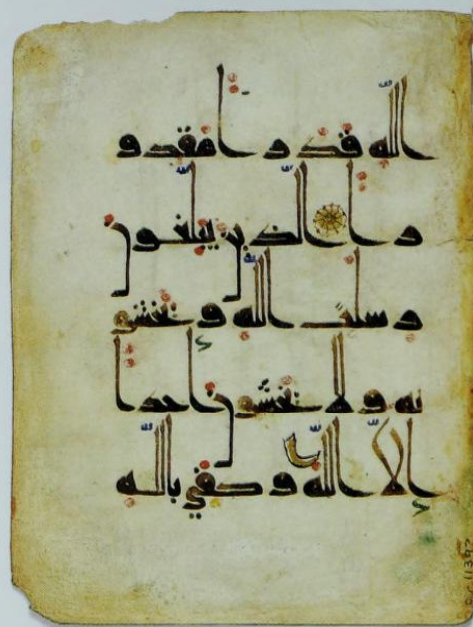 الله قدرا مقدو
را الذين يبلغون
رسلت الله و يخشو
نه ولا يخشون احدا
الا الله و كفي بالله